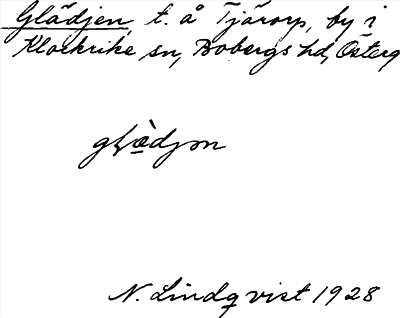 Glädjen, t. å Tjärorp, by i
Klockrike sn, Bobergs hd, Österg
glä̀djən
N. Lindqvist 1928